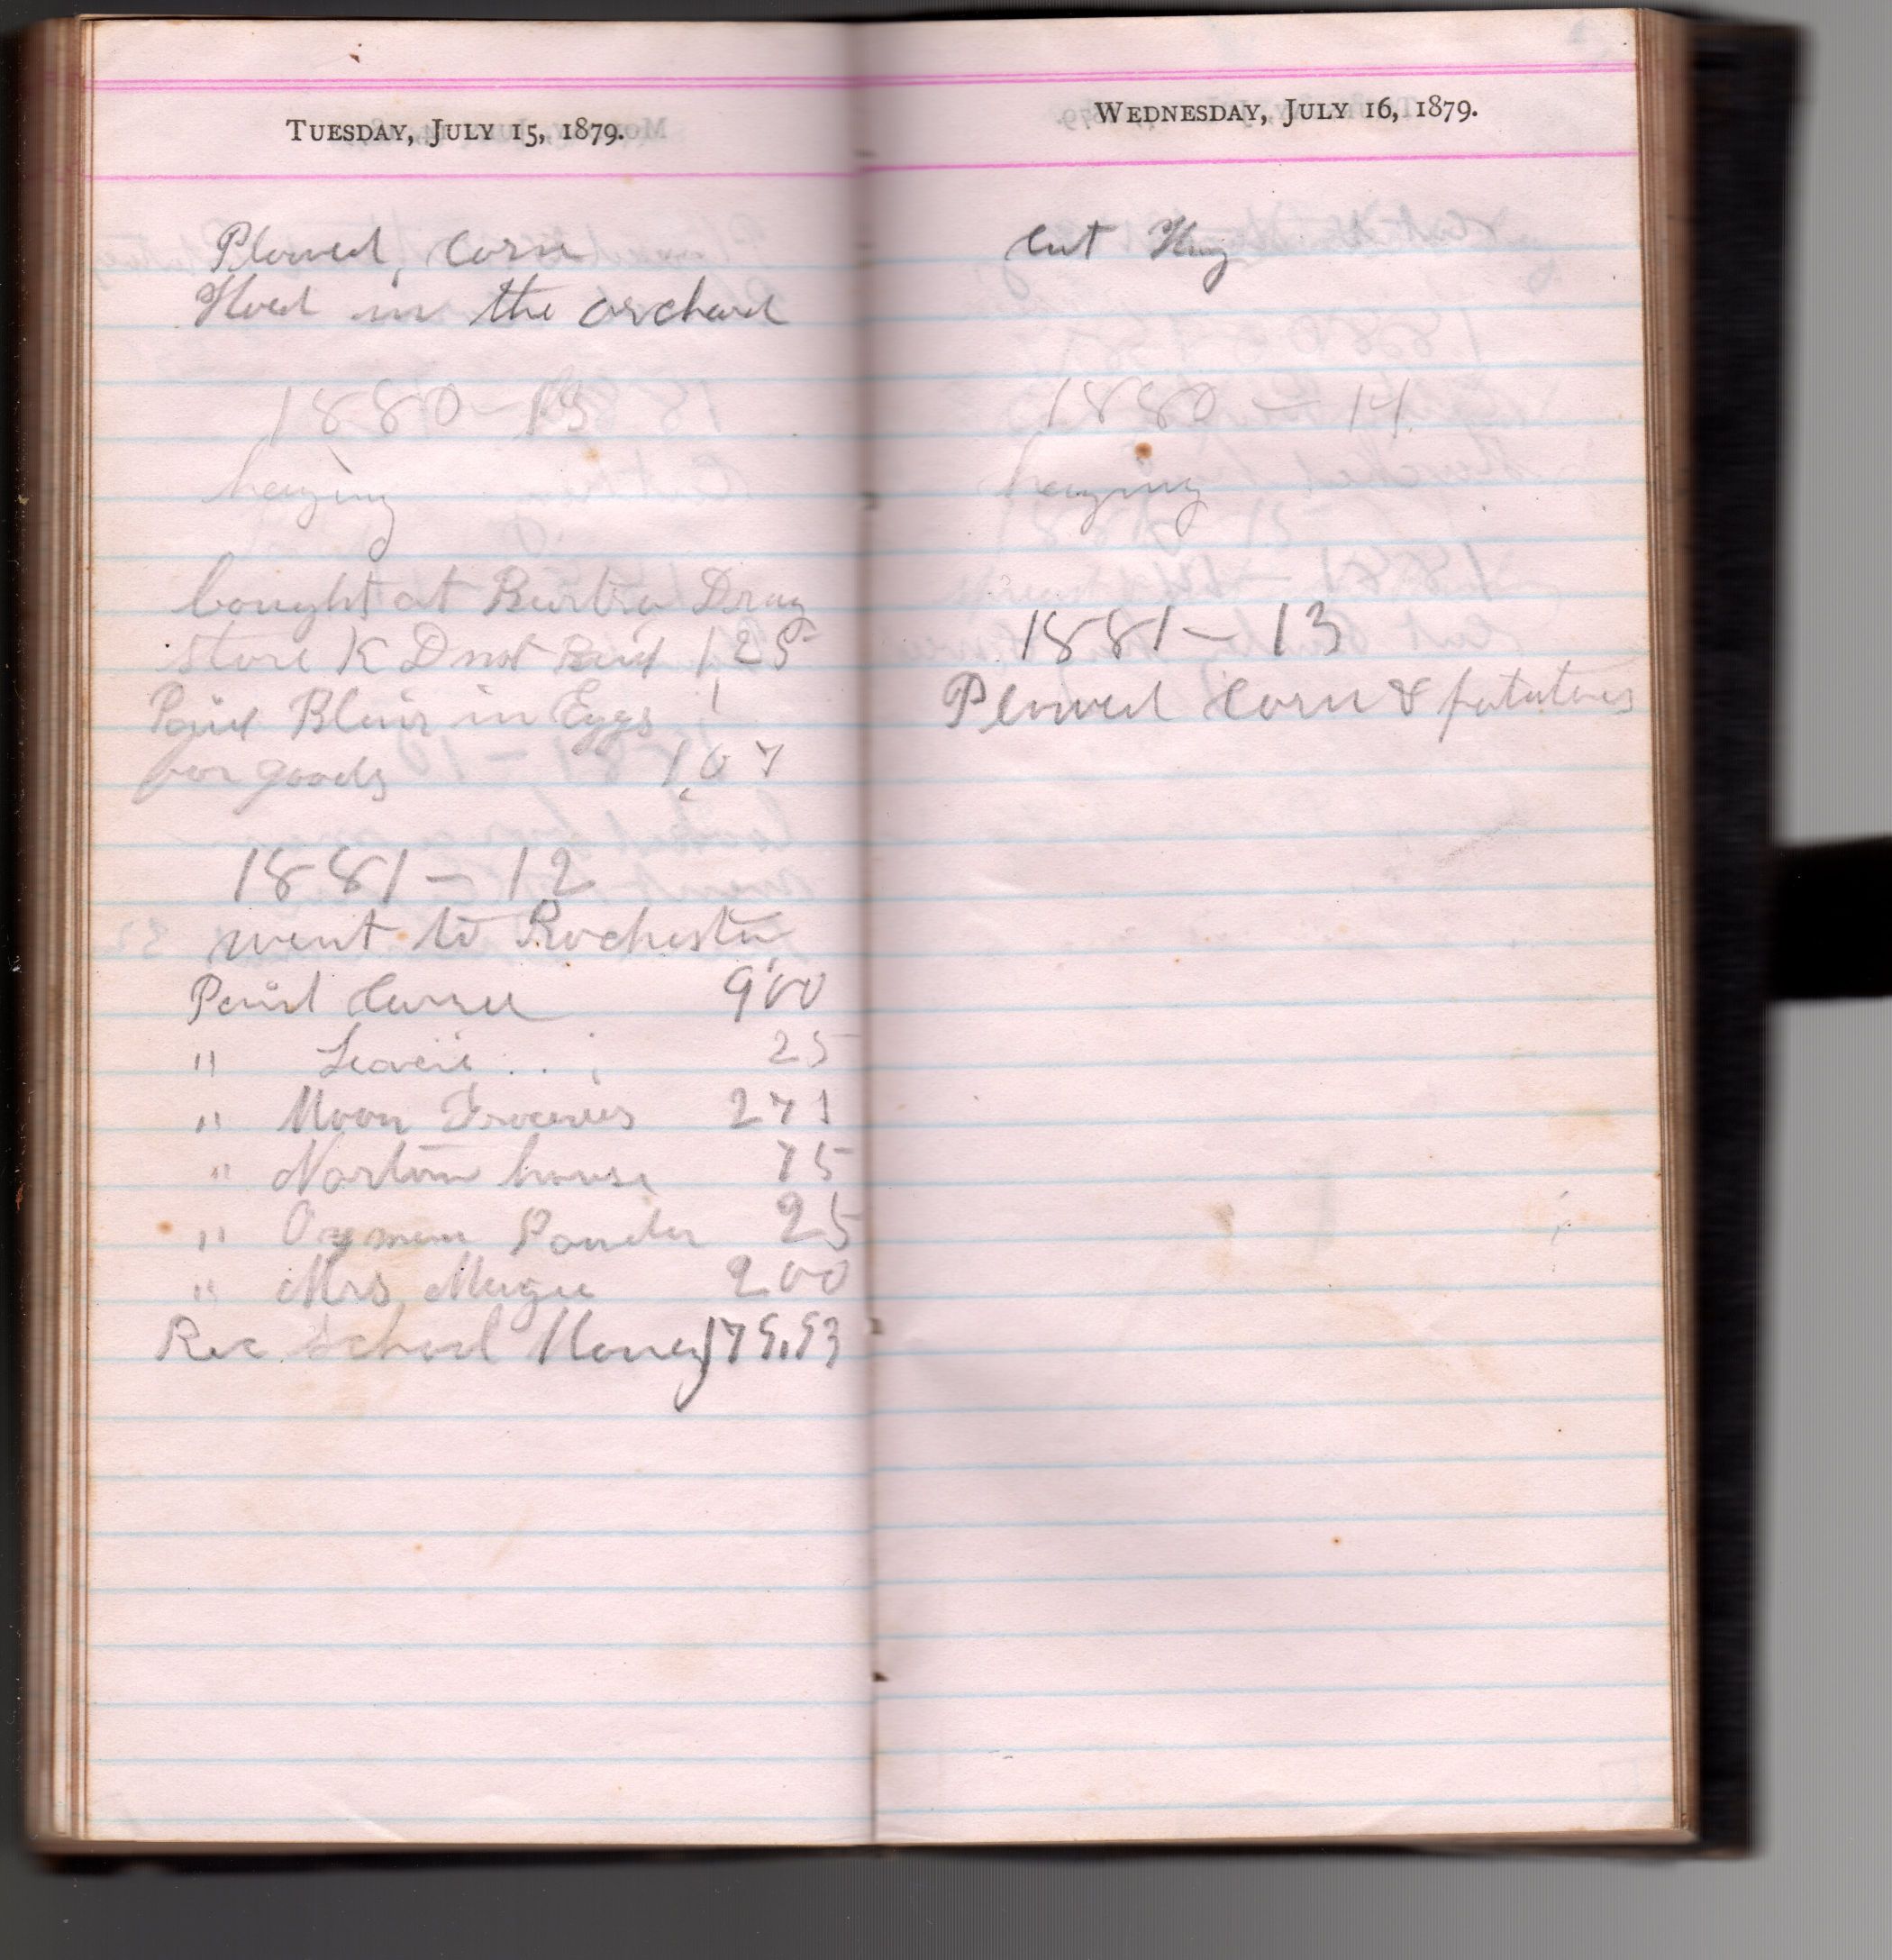 TUESDAY, JULY 15, 1879.
Plowed, Corn
Hoed in the orchard
1880 - 13
haying
bought at Drug
store K D not Paid 1 25
Paid Blair in Eggs
for goods 1,07
1881 - 12
went to Rochester
Paid 900
" 25
" Moon Groceries 271
" Norton house 75
" Powder 25
" Mrs, Magee 200
Rec School Money 175.53
WEDNESDAY, JULY 16, 1879.
Cut Hay
1880 - 14
haying
1881 - 13
Plowed Corn & potatoes